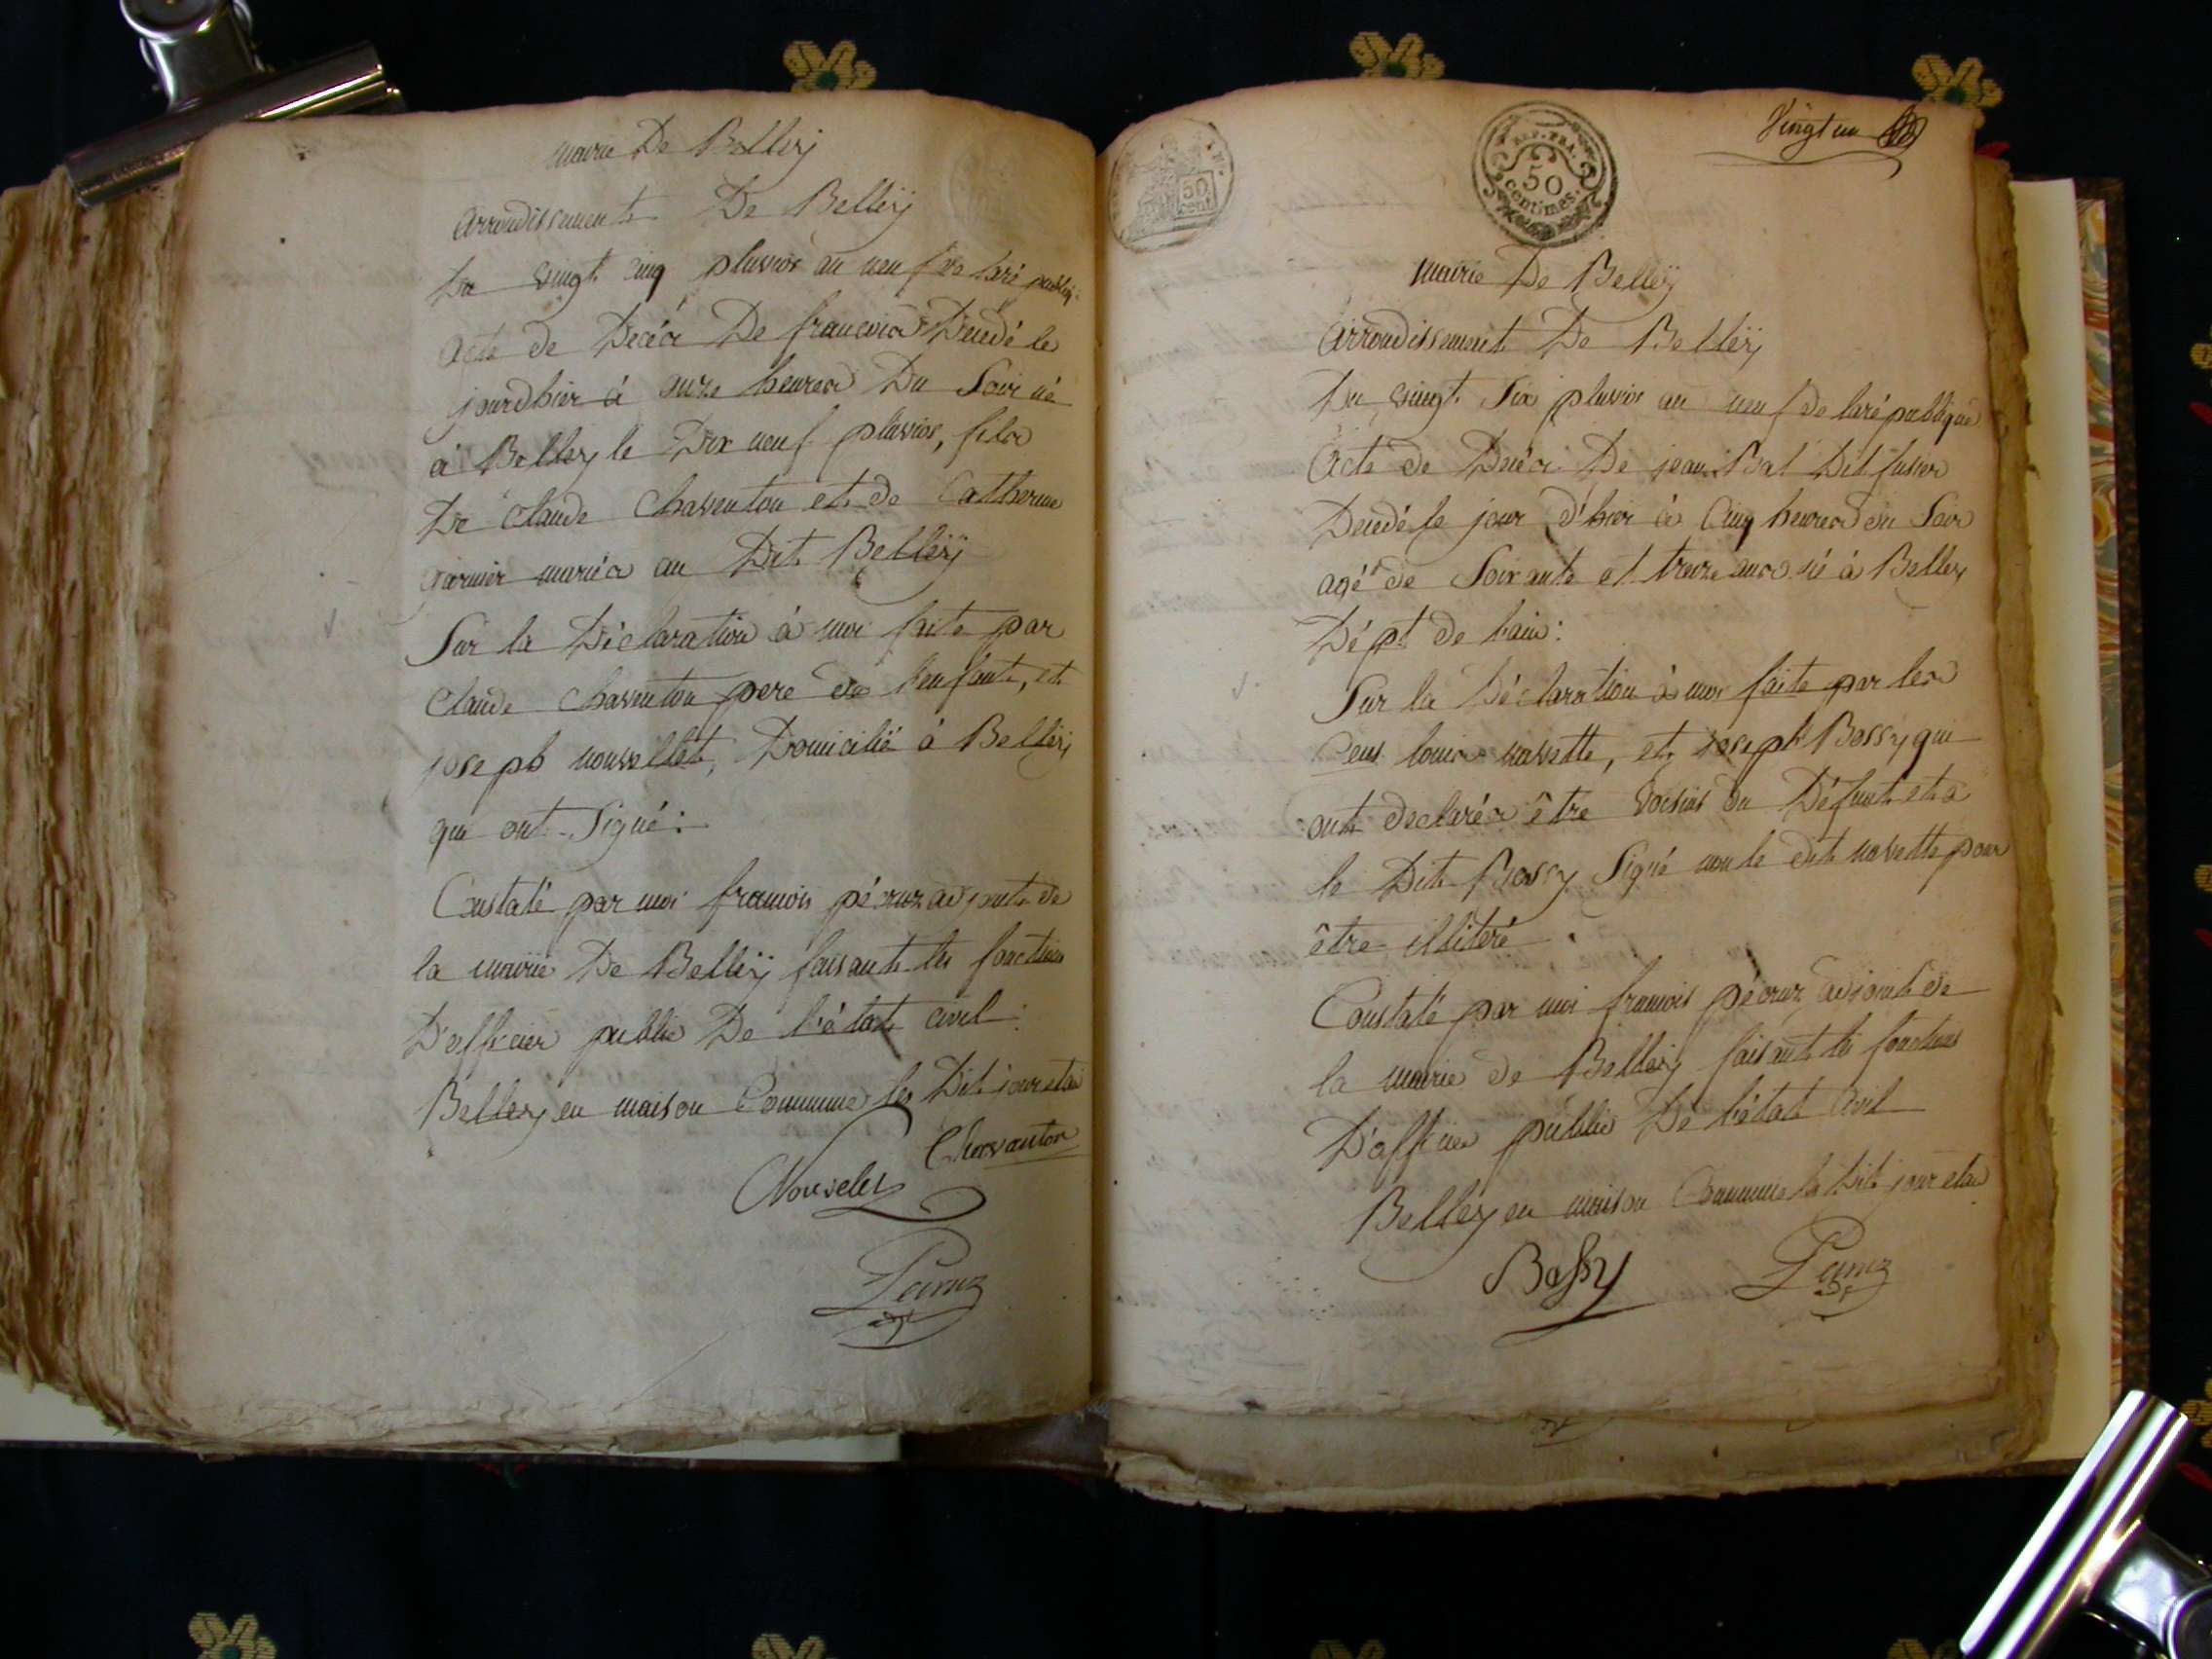 mairie De Belleÿ
arrondissement De Belleÿ
Du vingt cinq pluvios an neuf de laré publiq:
acte de Décés De francois Décédé le
jourdhier à onze heures Du Soir né
à Belleÿ le Dix neuf pluvios, fils
De Claude Chaventon et de Catherine
garnier mariés au Dit Belleÿ
Sur la Déclaration à moi faite par
Claude chaventon pere de l'enfant, et
joseph nouvellet, Domicilié à Belleÿ
qui ont Signé:
Constaté par moi francois pécruz adjoint de
la mairie De Belleÿ faisant les fonctions
D'officier public De l'état civil:
Belleÿ en maison Commune les Dit jour et an
Chavanton
Nouvelet
Pecruz
50 cent
REP. FRA.
50
centimes.
Vingt un
mairie De Belleÿ
Arrondissement De Belleÿ
Du vingt Six pluvios an neuf de laré publique
Acte de Décés De jean Bal Dit
Décédé le jour d'hier à Cinq heures du Soir
agé de Soixante et treize ans né à Belleÿ
Dépt de l'ain:
Sur la Déclaration à moi faite par les
Cens louis navette, et joseph Bossy qui
ont declarés être voisins du Défunt et a
le Dit Bossy Signé non le dit navette pour
être illitéré
Constaté par moi francois pécruz adjoint de
la mairie de Belleÿ faisant les fonctions
D'officier public De l'état Civil
Belleÿ en maison Commune le Dit jour et an
Bossy
Pecruz